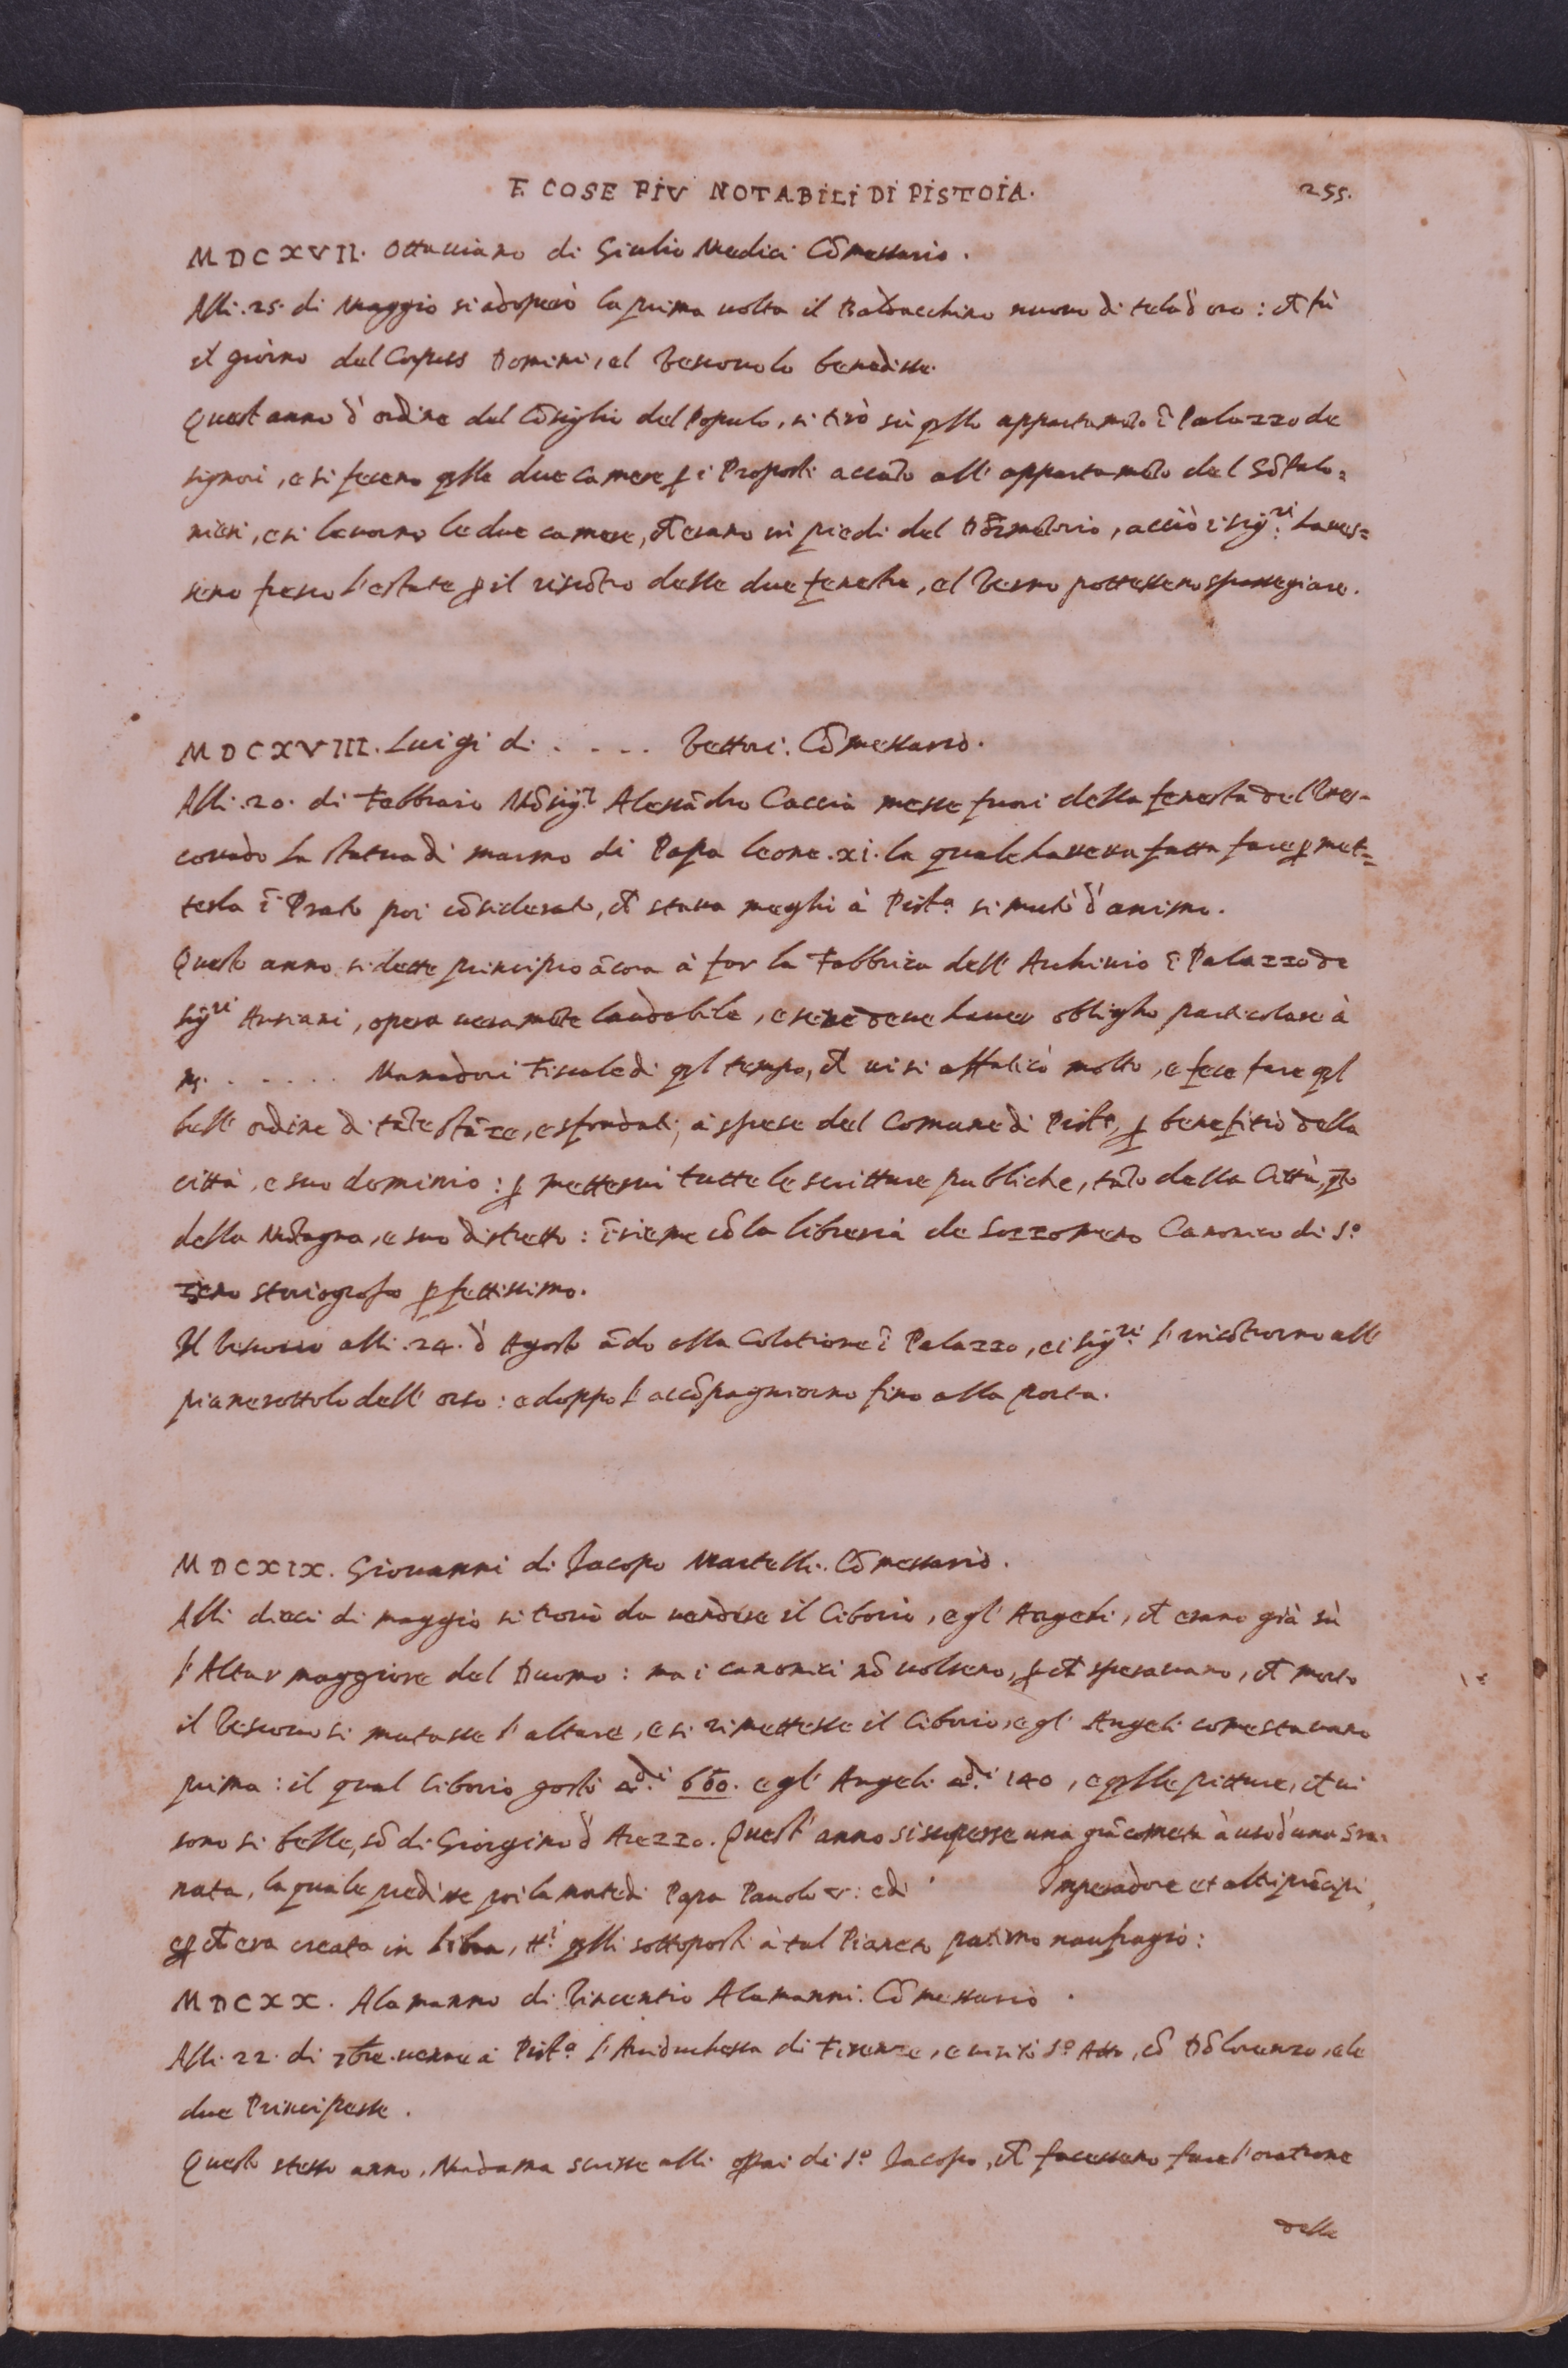 E COSE PIV NOTABILI DI PISTOIA. 255.
MDCXVII. Ottauiano di Giulio Medici Cõmessario.
Alli .25. di Maggio si adoperò la prima uolta il Baldacchino nuouo di tela d'oro: et fù
il giorno del Corpus Domini, el Vescouo lo benedisse.
Quest anno d'ordine del Cõsiglio del Populo, si tirò sù qllo appartamẽto ĩ Palazzo de
signori, e si feceno qlle due camere p i Proposti accãto all' appartamẽto del Gõfalo=
nieri, e si leuorno le due camere, et erano in piedi del Dõrmẽtorio, acciò i sig.ri haues=
seno fresco l'estate p il riscõtro delle due fenestre, el Verno potesseno spasseggiare.
MDCXVIII. Luigi di . . . . Vettori. Cõmessario.
Alli .20. di Febbraio Mõsig.r Alessãdro Caccia messe fuori della fenestra del Ves=
couado la statua di marmo di Papa Leone .xi. la quale haueua fatta fare p met=
terla ĩ Prato poi cõsiderato, et staua meglio à Pist.a si mutò d'animo.
Questo anno si dette principio ãcora à far la Fabbrica dell' Archiuio ĩ Palazzo de
sig.ri Antiani, opera ueramẽte laudabile, e se ne deue hauer obbligho particolare à
ms. . . . . . . Manadori Fiscale di ql tempo, et ui si affaticò molto, e fece fare ql
bell' ordine di tãte stãze, e sfondati, à spese del Comune di Pist.a, p benefitio della
città, e suo dominio: p metterui tutte le scritture pubbliche, tãto della Città, qto
della Mõtagna, e suo distretto: ĩsieme cõ la libreria de Sozzomeno Canonico di S.o
Zeno storiografo pfettissimo.
Il Vescouo alli .24. d'Agosto ãdo alla Colatione ĩ Palazzo, e i sig.ri l'incõtrorno all
pianerottolo dell' orso: e doppo l'accõpagniorno fino alla porta.
MDCXIX. Giouanni di Jacopo Martelli. Cõmessario.
Alli dieci di maggio si trouò da uendere il Ciborio, e gl' Angeli, et erano già sù
l'Altar maggiore del Duomo: ma i canonici nõ uolseno, p et sperauano, et morto
il Vescouo si mutasse l'altare, e si rimettesse il Ciborio, e gl' Angeli come stauano
prima: il qual Ciborio costò .di 660. e gl' Angeli .di 140, e qlle pitture, et ui
sono si belle, sõ di Giorgino d'Arezzo. Quest' anno si scoperse una grã cometa à uso d'una Gra=
nata, la quale predisse poi la morte di Papa Pauolo V: e di Imperadore et altri prĩcipi,
e p et era creata in Libra, tt.i qlli sottoposti à tal Pianeto patirno naufragio:
MDCXX. Alamanno di Vincentio Alamanni. Cõmessario.
Alli .22. di 7bre. uenne à Pist.a l'Arciduchessa di Firenze, e uisitò S.o Atto, cõ Dõ Lorenzo, e le
due Principesse.
Questo stesso anno, Madama scrisse alli opai di S.o Jacopo, et facesseno fare l'oratione
delle